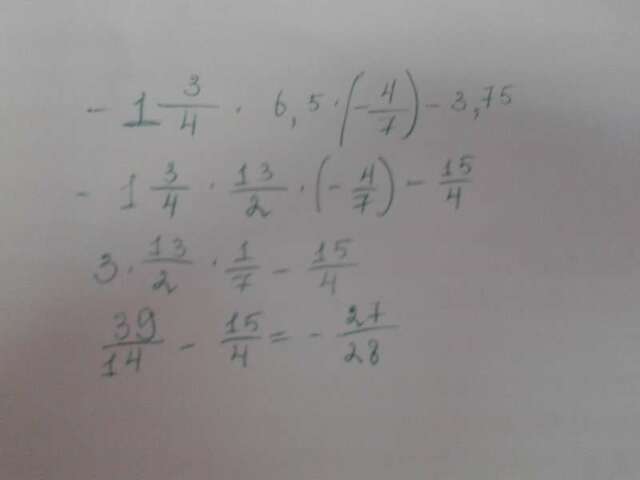 - 1 3/4 · 6,5 · (- 4/7) - 3,75
- 1 3/4 · 13/2 · (- 4/7) - 15/4
3 · 13/2 · 1/7 - 15/4
39/14 - 15/4 = - 27/28